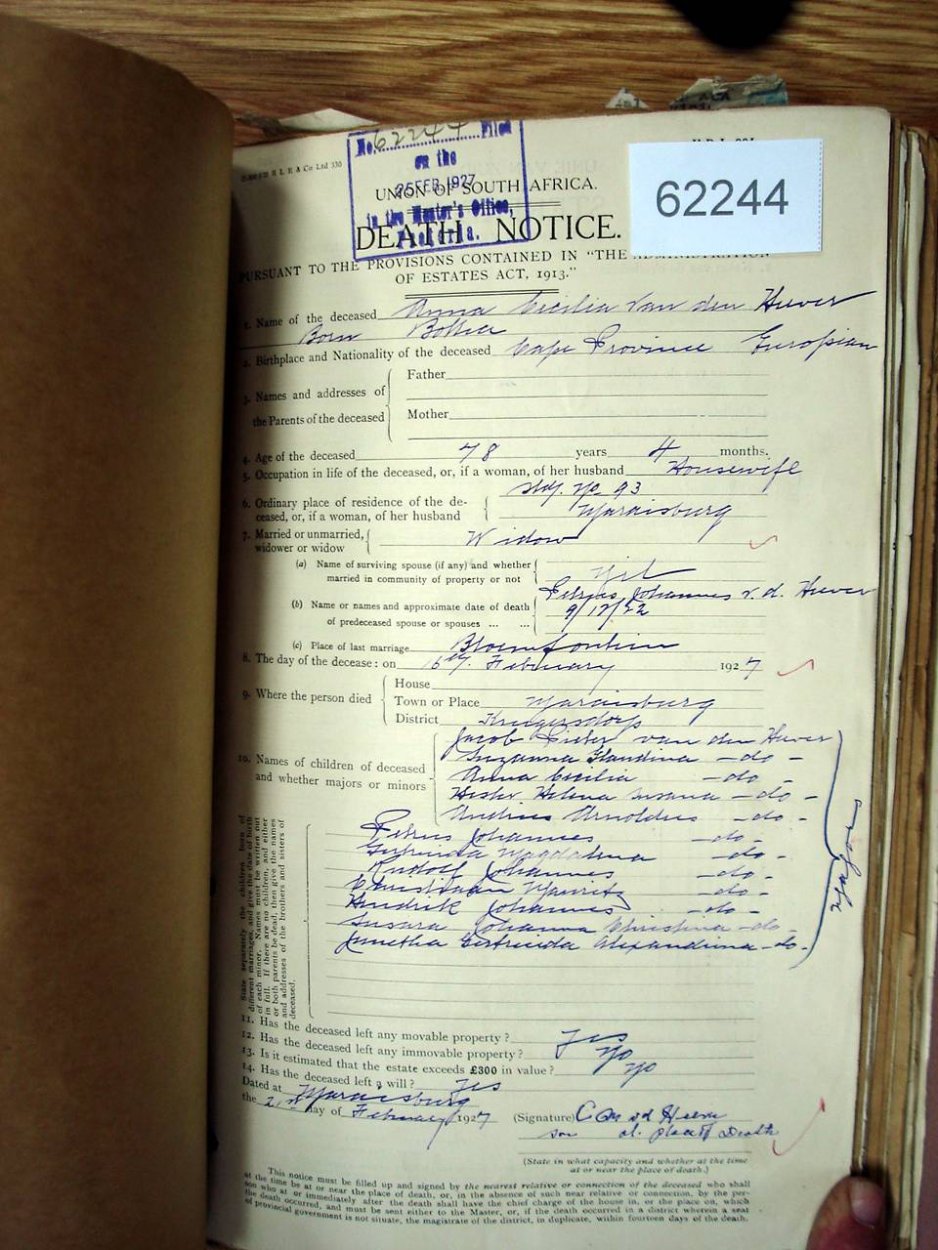 No. 62244 Filed
on the
25 FEB 1927
in the Master's Office,
Pretoria.
62244
UNION OF SOUTH AFRICA.
DEATH NOTICE.
PURSUANT TO THE PROVISIONS CONTAINED IN "THE ADMINISTRATION
OF ESTATES ACT, 1913."
1. Name of the deceased Anna Cecilia Van den Heever
Born Botha
2. Birthplace and Nationality of the deceased Cape Province European
3. Names and addresses of the Parents of the deceased
Father
Mother
4. Age of the deceased 78 years 4 months.
5. Occupation in life of the deceased, or, if a woman, of her husband Housewife
6. Ordinary place of residence of the deceased, or, if a woman, of her husband
No 93
Maraisburg
7. Married or unmarried, widower or widow Widow
(a) Name of surviving spouse (if any) and whether married in community of property or not Nil
(b) Name or names and approximate date of death of predeceased spouse or spouses ... ...
Petrus Johannes v. d. Heever
9/12/22
(c) Place of last marriage Bloemfontein
8. The day of the decease: on 16th February 1927
9. Where the person died
House
Town or Place Maraisburg
District Krugersdorp
10. Names of children of deceased and whether majors or minors
Jacob Pieter van den Heever
Suzanna Glaudina - do -
Anna Cecilia - do -
Hester Helena Susana - do -
Andries Arnoldus - do -
Petrus Johannes - do -
Gertruida Magdalena - do -
Rudolf Johannes - do -
Christiaan Mauritz - do -
Hendrik Johannes - do -
Susara Johanna Christina - do -
Gertruida Alexandrina - do -
Majors
State separately the children born of different marriages, and give the date of birth of each minor. Names must be written out in full. If there are no children, and either or both parents be dead, then give the names and addresses of the brothers and sisters of deceased.
11. Has the deceased left any movable property? Yes
12. Has the deceased left any immovable property? No
13. Is it estimated that the estate exceeds £300 in value? No
14. Has the deceased left a will? Yes
Dated at Maraisburg
the 21st day of February 1927
(Signature) C M vd Heever
son at place of Death
(State in what capacity and whether at the time
at or near the place of death.)
This notice must be filled up and signed by the nearest relative or connection of the deceased who shall
at the time be at or near the place of death, or, in the absence of such near relative or connection, by the per-
son who at or immediately after the death shall have the chief charge of the house in, or the place on, which
the death occurred, and must be sent either to the Master, or, if the death occurred in a district wherein a seat
of provincial government is not situate, the magistrate of the district, in duplicate, within fourteen days of the death.